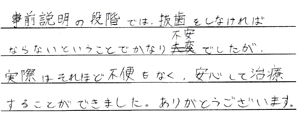 事前説明の段階では、抜歯をしなければ
ならないということでかなり不安でしたが、
実際はそれほど不便もなく、安心して治療
することができました。ありがとうございます。